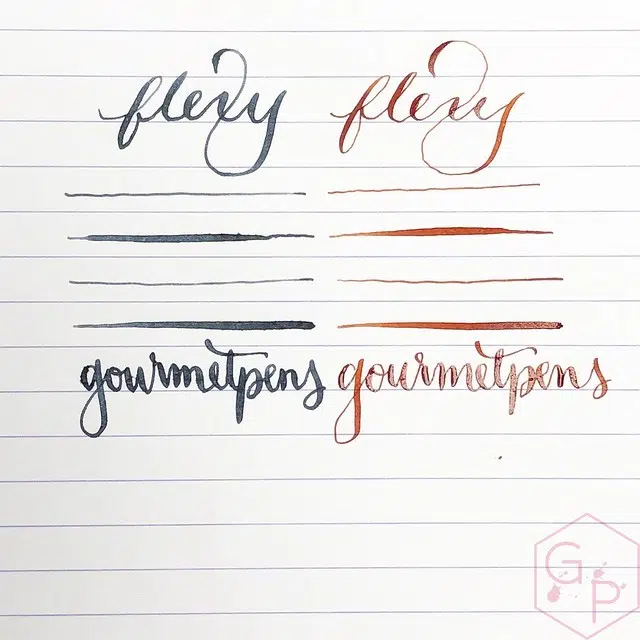 flexy flexy
gourmetpens gourmetpens
GP